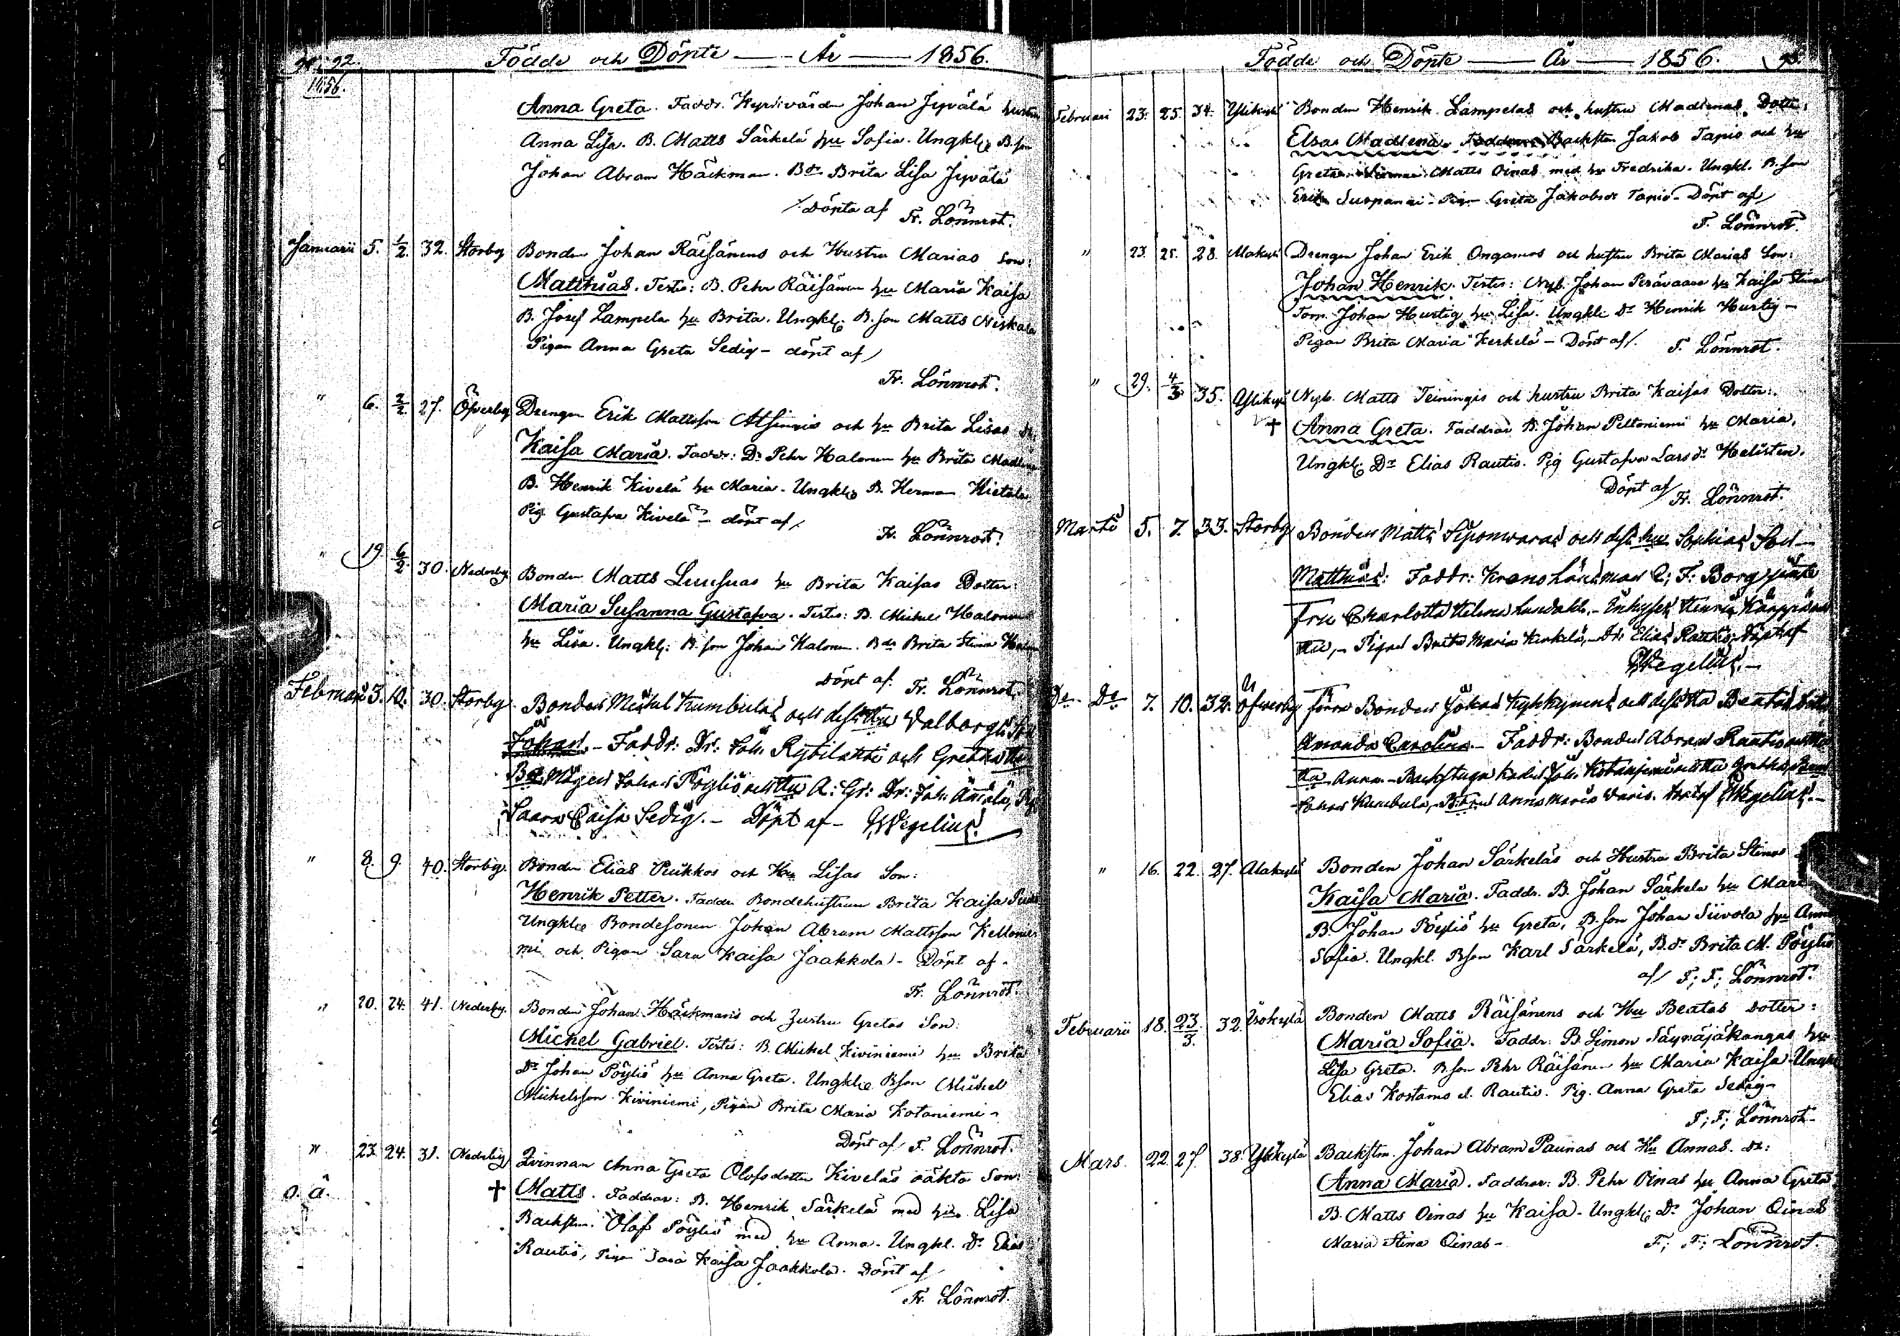 92. Födde och Döpte — År — 1856.
1856.
Anna Greta. Faddr. Kyrkvärden Johan Jyvälä hustru
Anna Lisa. B. Matts Särkelä hu Sofia. Ungkl. B. son
Johan Abram Häckman. Bdr Brita Lisa Jyvälä
Döpte af Fr. Lönnrot.
Januarii 5. 1/2. 32. Storby Bonden Johan Räisänens och Hustru Marias son:
Matthias. Testes: B. Pehr Räisänen hu Maria Kaisa
B. Josef Lampela hu Brita. Ungkl. B. son Matts Niskala
Pigan Anna Greta Sedig - döpt af
Fr. Lönnrot.
" 6. 2/2 27. Öfverby Drengen Erik Mattsson Alsingis och hu Brita Lisas dr:
Kaisa Maria. Faddr: Dr Pehr Halonen hu Brita Madlena
B. Henrik Kivelä hu Maria. Ungkl. B. Herman Hietala
Pig. Gustafva Kivelä - döpt af
Fr. Lönnrot.
" 19. 6/2 30. Nederby Bonden Matts Luusuas hu Brita Kaisas Dotter:
Maria Susanna Gustafva. Testes: B. Michel Halonen
hu Lisa. Ungkl: B. son Johan Halonen. Bdr Brita Stina
Döpt af Fr. Lönnrot.
Februari 3. 10. 30. Storby Bonden Michel Kumbulas och dess Hu Valborgs Son
Johan. - Faddr: Dr: Joh: Kytilakki och Gretha
Johan Pöyliö och Hu A: Gr: Dr: Joh:
Saara Caisa Sedig. - Döpt af - Wegelius.
" 8. 9. 40. Storby. Bonden Elias Puikkos och Hu Lisas Son:
Henrik Petter. Faddr. Bondehustrun Brita Kaisa
Ungkl. Bondesonen Johan Abram Mattsson Kelloniemi
och Pigan Sara Kaisa Jaakkola - Döpt af -
Fr. Lönnrot.
" 20. 24. 41. Nederby. Bonden Johan Häckmans och hustru Gretas Son:
Michel Gabriel. Testes: B. Michel Kiviniemi hu Brita
Dr Johan Pöyliö hu Anna Greta. Ungkl. B son Michel
Michelsson Kiviniemi, Pigan Brita Maria Kotaniemi -
Döpt af F. Lönnrot.
" 23. 24. 31. Nederby Qvinnan Anna Greta Olofsdotter Kiveläs oäkta Son:
o. ä. † Matts. Faddrar: B. Henrik Särkelä med hu Lisa
Backstn. Olof Pöyliö med hu Anna. Ungkl. Dr Elias
Rautio, Pigan Sara Kaisa Jaakkola. Döpt af
Fr. Lönnrot.
Födde och Döpte — År — 1856. 93.
Februari 23. 25. 34. Ylikylä Bonden Henrik Lampelas och hustru Madlenas Dotter:
Elsa Madlena. Faddrar Backstn Jakob Tapio och hu
Greta. Matts Oinas med hu Fredrika. Ungkl. B. son
Erik Suopanki - Pig. Greta Jakobsdr Tapio - Döpt af
F. Lönnrot.
" 23. 25. 28. Alakylä Drengen Johan Erik Ongamos och hustru Brita Marias Son:
Johan Henrik. Testes: Nyb. Johan Perävaara hu Kaisa Stina
Torp. Johan Hurtig hu Lisa. Ungkl. Dr Henrik Hurtig -
Pigan Brita Maria Kerkelä - Döpt af. F. Lönnrot.
" 29. 4/3. 35. Ylikylä Nyb. Matts Teiningis och hustru Brita Kaisas Dotter:
† Anna Greta. Faddrar B. Johan Peltoniemi hu Maria,
Ungkl. Dr Elias Rautio. Pig. Gustafva Larsdr Helisten.
Döpt af Fr. Lönnrot.
Martii 5. 7. 33. Storby Bonden Matts Siponvaras och dess hu Sophias Son
Matthias: Faddr: Krono Länsman C: F: Borg jämte
Fru Charlotta Helena Lundahl, - Enkyset Henric
Hu, - Pigan Brita Maria Kerkelä, - Dr Elias Rautio. Döpt af
Wegelius. -
Do Do 7. 10. 32. Öfverby Förre Bonden Johan Kyhkynens och dess Hu Beatas Dotter
Amanda Carolina - Faddr: Bonden Abram Rautio och
Hu Anna - Backstuga karlen Joh: Kotaniemi och Hu Gretha,
Johan Kumbula, - B: Anna Maria Döpt af Wegelius. -
" 16. 22. 27. Alakylä Bonden Johan Särkeläs och Hustru Brita Stinas
Kaisa Maria. Faddr. B. Johan Särkelä hu Maria
B. Johan Pöyliö hu Greta, B. son Johan Siivola hu Anna
Sofia. Ungkl. Bson Karl Särkelä, B. dr Brita M. Pöyliö
af F; F; Lönnrot.
Februarii 18. 23/3. 32. Isokylä Bonden Matts Räisänens och Hu Beatas Dotter:
Maria Sofia. Faddr. B. Simon Säynäjäkangas hu
Lisa Greta. B son Pehr Räisänen hu Maria Kaisa. Ungkl
Elias Kostamo el. Rautio. Pig. Anna Greta Sedig -
F; F; Lönnrot -
Mars. 22. 27. 38. Ylikylä Backstn. Johan Abram Paunas och Hu Annas dr:
Anna Maria. Faddrar: B. Pehr Oinas hu Anna Greta
B. Matts Oinas hu Kaisa - Ungkl. Dr Johan Oinas
Maria Stina Oinas - F; F; Lönnrot.